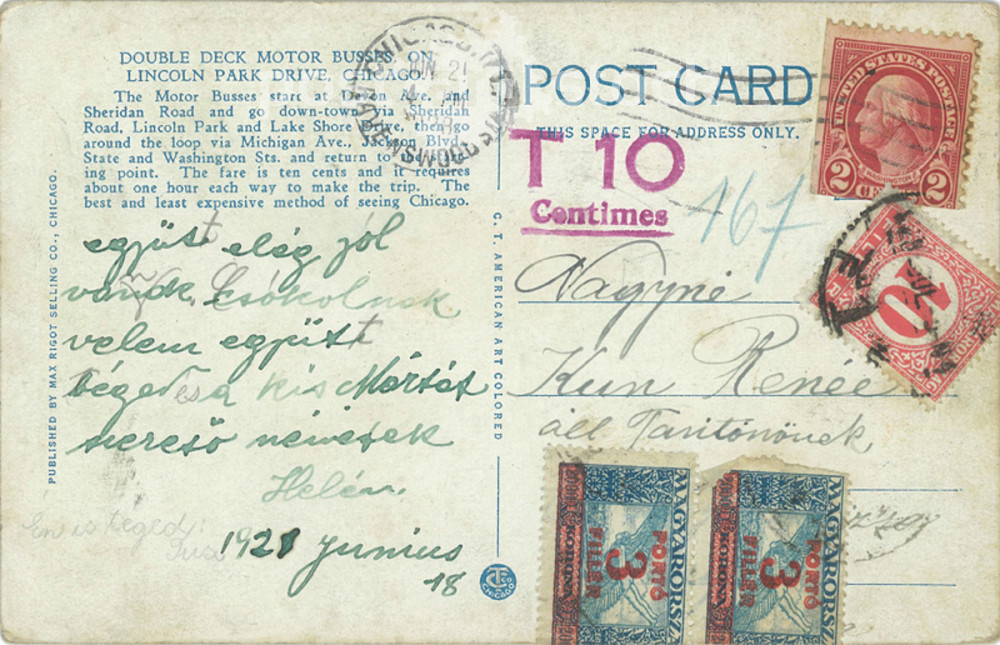 DOUBLE DECK MOTOR BUSSES, ON
LINCOLN PARK DRIVE, CHICAGO.
The Motor Busses start at Devon Ave. and
Sheridan Road and go down-town via Sheridan
Road, Lincoln Park and Lake Shore Drive, then go
around the loop via Michigan Ave., Jackson Blvd.,
State and Washington Sts. and return to
ing point. The fare is ten cents and it requires
about one hour each way to make the trip. The
best and least expensive method of seeing Chicago.
együtt elég jól
vannak, Csókolnak
velem együtt
téged és a kis Mártát
szerető néniétek
Helén.
Én is téged
1921 Junius
18
PUBLISHED BY MAX RIGOT SELLING CO., CHICAGO.
C. T. AMERICAN ART COLORED
POST CARD
THIS SPACE FOR ADDRESS ONLY.
T 10
Centimes
167
Nagyné
Kun Renée
áll Tanitónőnek
UNITED STATES POSTAGE
WASHINGTON
2 CENTS 2
10
MAGYARORSZÁG
PORTÓ
3
FILLÉR
MAGYARORSZÁG
PORTÓ
3
FILLÉR
CHICAGO
JUN 21